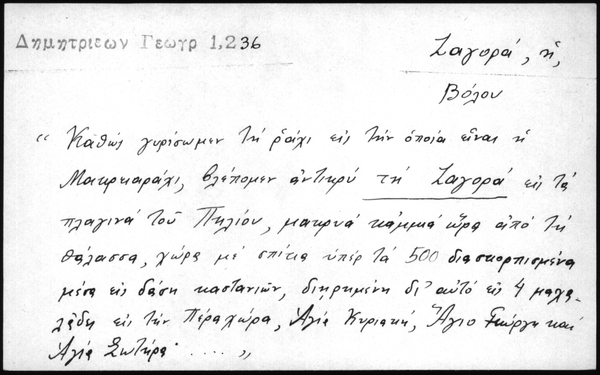 Δημητριεων Γεωγρ 1,236
Ζαγορά, ἡ,
Βόλου
“ Καθὼς γυρίσωμεν τὴ ῥάχι εἰς τὴν ὁποία εἶναι ἡ
Μακρκαράχι, βλέπομεν ἀντικρύ τὴ Ζαγορά εἰς τὰ
πλαγινὰ τοῦ Πηλίου, μακρυά καμμιά ὥρα ἀπό τὴ
θάλασσα, χώρα μέ σπίτια ὑπέρ τὰ 500 διασκορπισμένα
μέσα εἰς δάση καστανιῶν, διῃρημένη δι' αὐτό εἰς 4 μαχα-
λάδη εἰς τὴν Πέραχώρα, Ἁγία Κυριακή, Ἅγιο Γεώργη καί
Ἁγία Σωτήρα ..... ”